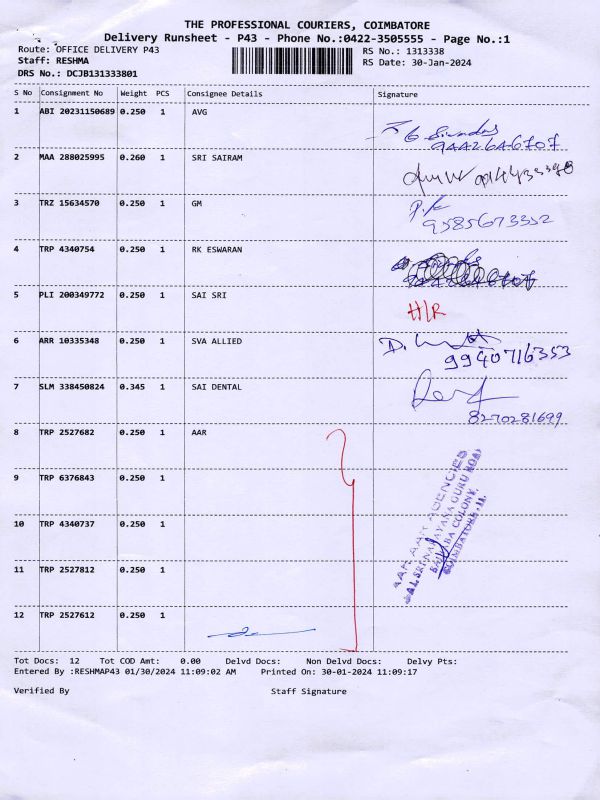 THE PROFESSIONAL COURIERS, COIMBATORE
Delivery Runsheet - P43 - Phone No.:0422-3505555 - Page No.:1
Route: OFFICE DELIVERY P43 RS No.: 1313338
Staff: RESHMA RS Date: 30-Jan-2024
DRS No.: DCJB131333801
S No Consignment No Weight PCS Consignee Details Signature
1 ABI 20231150689 0.250 1 AVG
2 MAA 288025995 0.260 1 SRI SAIRAM
3 TRZ 15634570 0.250 1 GM
9585673352
4 TRP 4340754 0.250 1 RK ESWARAN
5 PLI 200349772 0.250 1 SAI SRI
H/R
6 ARR 10335348 0.250 1 SVA ALLIED
9940716353
7 SLM 338450824 0.345 1 SAI DENTAL
8270281699
8 TRP 2527682 0.250 1 AAR
9 TRP 6376843 0.250 1
10 TRP 4340737 0.250 1
11 TRP 2527812 0.250 1
12 TRP 2527612 0.250 1
AAR AGENCIES
NARAYANA GURU ROAD
COLONY,
COIMBATORE-11.
Tot Docs: 12 Tot COD Amt: 0.00 Delvd Docs: Non Delvd Docs: Delvy Pts:
Entered By :RESHMAP43 01/30/2024 11:09:02 AM Printed On: 30-01-2024 11:09:17
Verified By Staff Signature